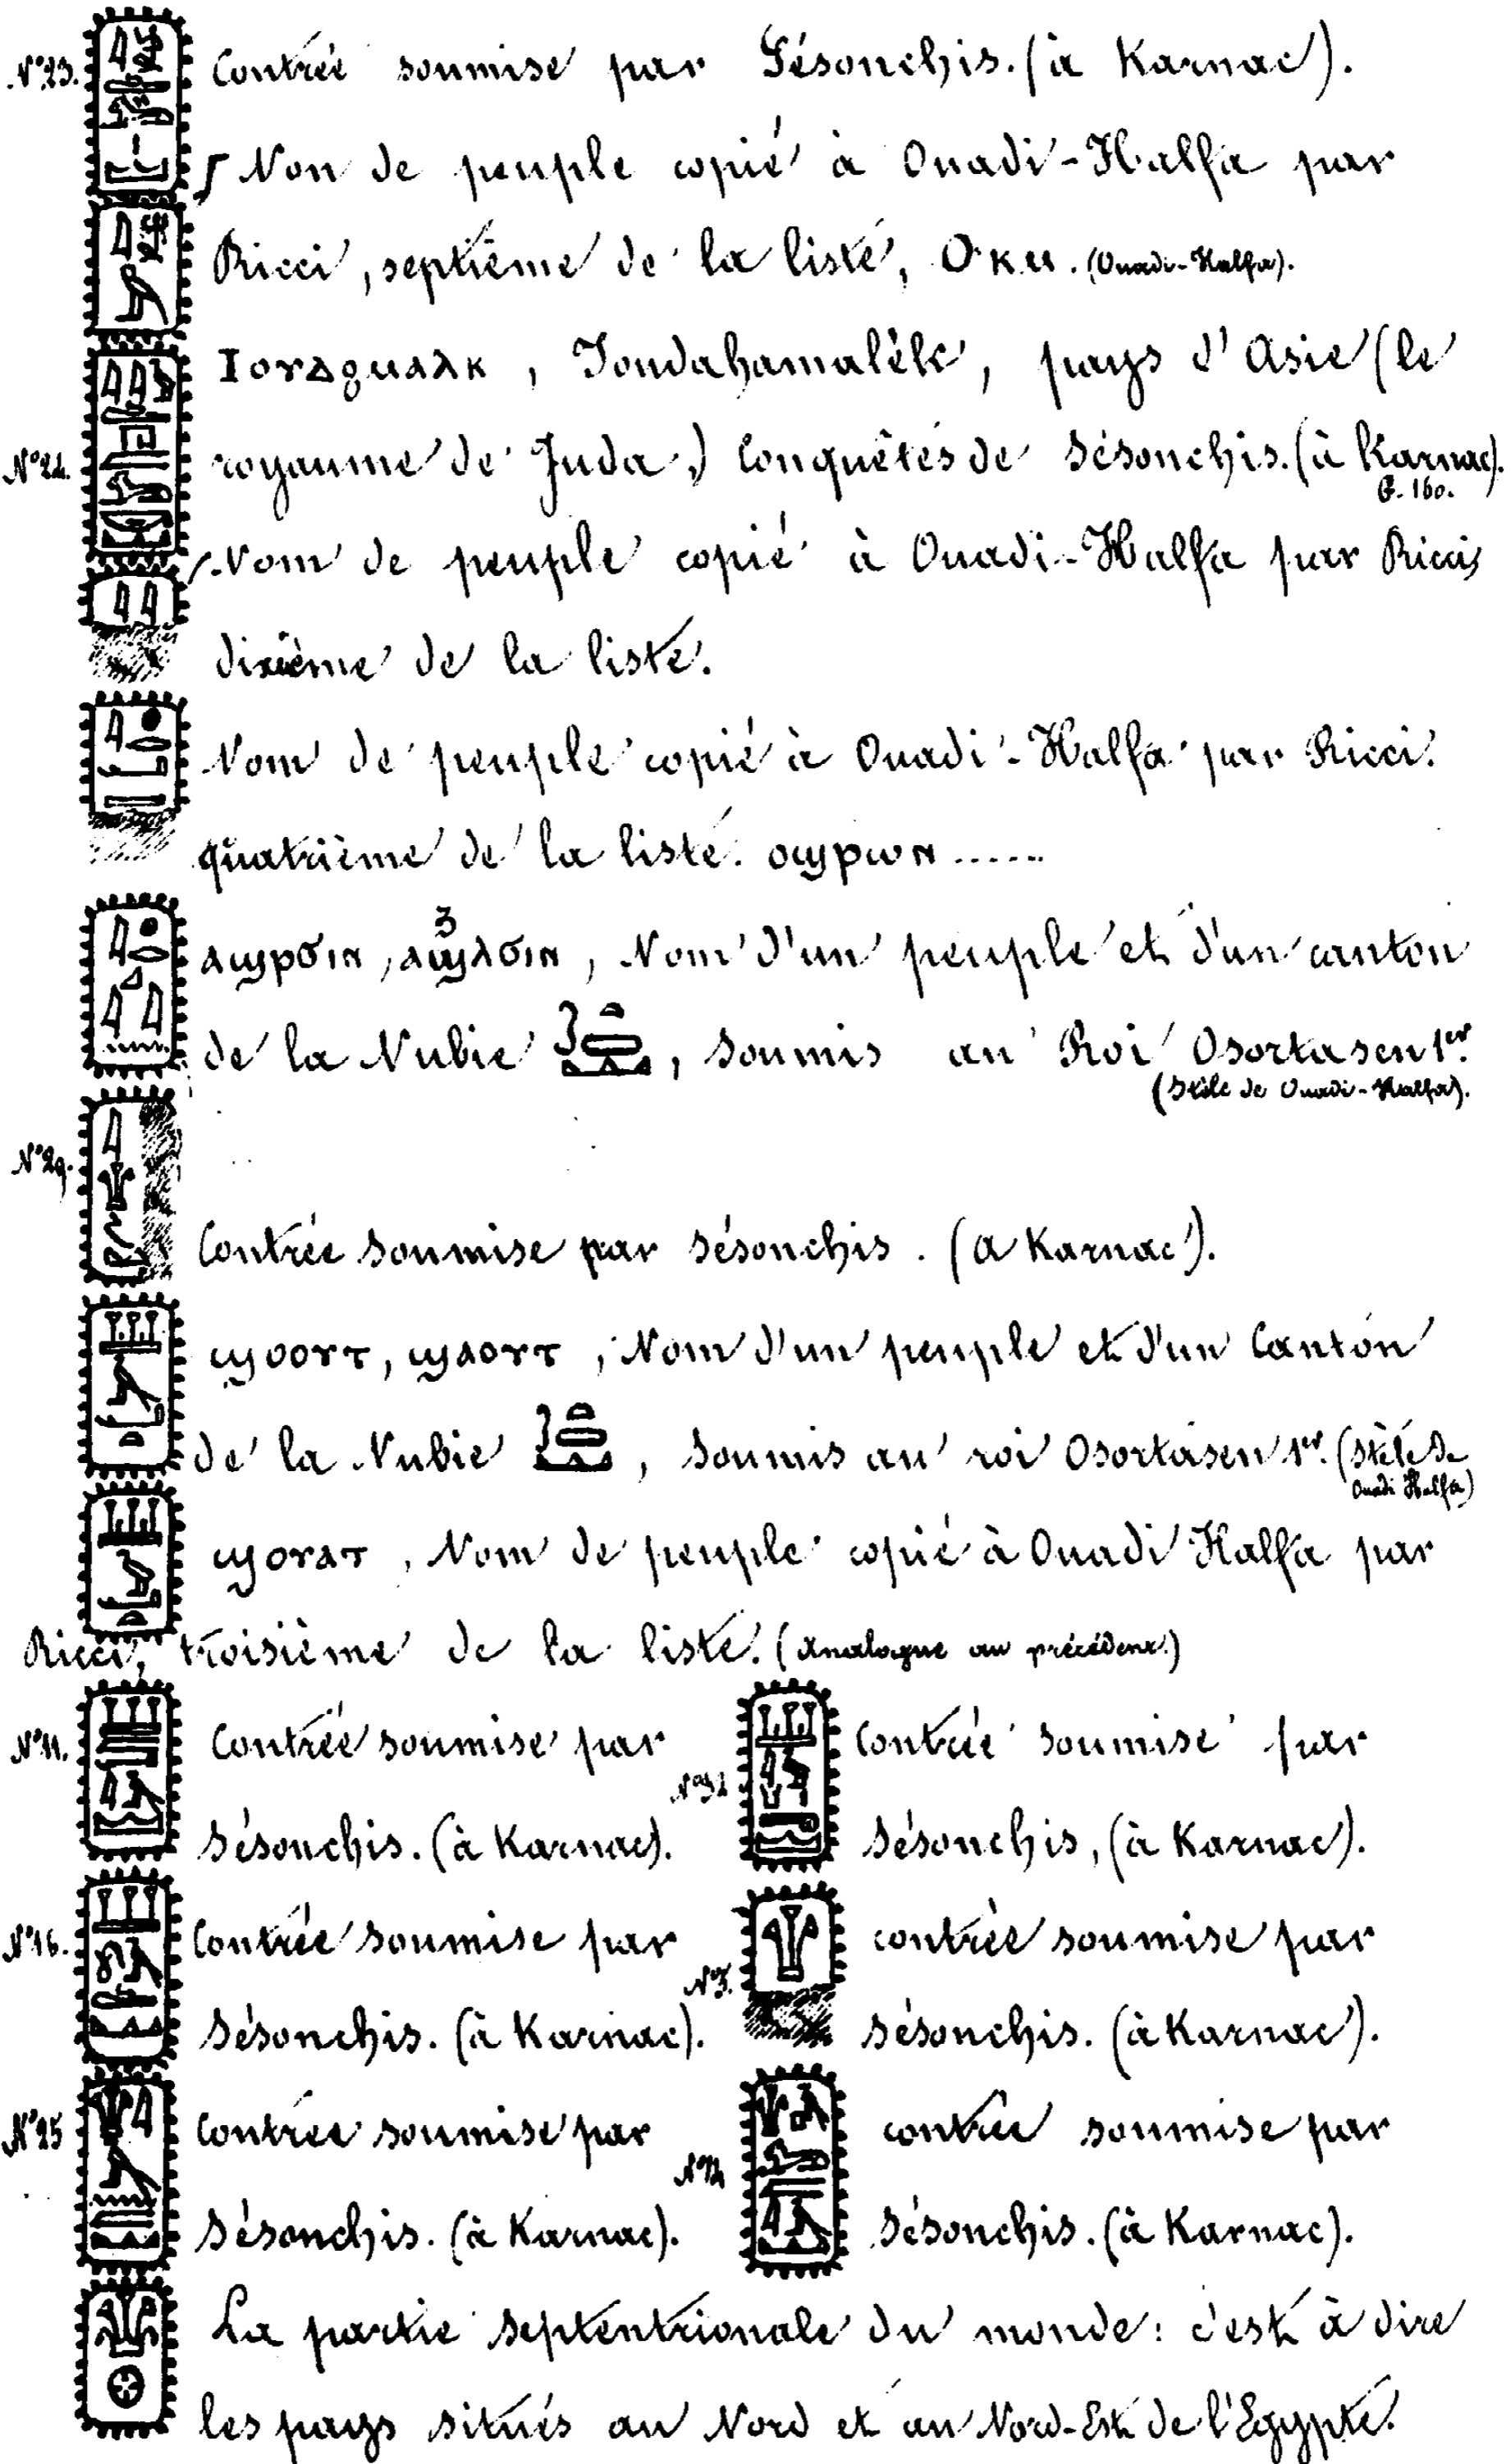 N°23. Contrée soumise par Sésonchis. (à Karnac).
Non de peuple copié à Ouadi-Halfa par
Ricci, septième de la liste, Οκⲙ. (Ouadi-Halfa).
Ιⲟⲩⲇϩⲙⲁⲗⲕ, Joudahamalèk, pays d'Asie (le
N°24. royaume de Juda,) Conquêtes de Sésonchis. (à Karnac).
G. 160.
Nom de peuple copié à Ouadi-Halfa par Ricci,
dixième de la liste.
Nom de peuple copié à Ouadi-Halfa par Ricci.
quatrième de la liste. ⲟϣⲣⲱⲛ ......
ⲁϣⲣϭⲓⲛ, ⲁϣⲗϭⲓⲛ, Nom d'un peuple et d'un canton
de la Nubie , soumis au Roi Osortasen 1er.
(Stèle de Ouadi-Halfa).
N°29.
Contrée soumise par Sésonchis. (à Karnac).
ϣⲟⲟⲩⲧ, ϣⲁⲟⲩⲧ, Nom d'un peuple et d'un Canton
de la Nubie , soumis au roi Osortasen 1er. (Stèle de
Ouadi Halfa)
ϣⲟⲩⲁⲧ, Nom de peuple copié à Ouadi Halfa par
Ricci, troisième de la liste. (Analogue au précédent.)
N°11. Contrée soumise par
Sésonchis. (à Karnac).
Contrée soumise par
Sésonchis, (à Karnac).
N°16. Contrée soumise par
Sésonchis. (à Karnac).
contrée soumise par
Sésonchis. (à Karnac).
N°25 Contrée soumise par
Sésonchis. (à Karnac).
contrée soumise par
Sésonchis. (à Karnac).
La partie septentrionale du monde: c'est à dire
les pays situés au Nord et au Nord-Est de l'Egypte.